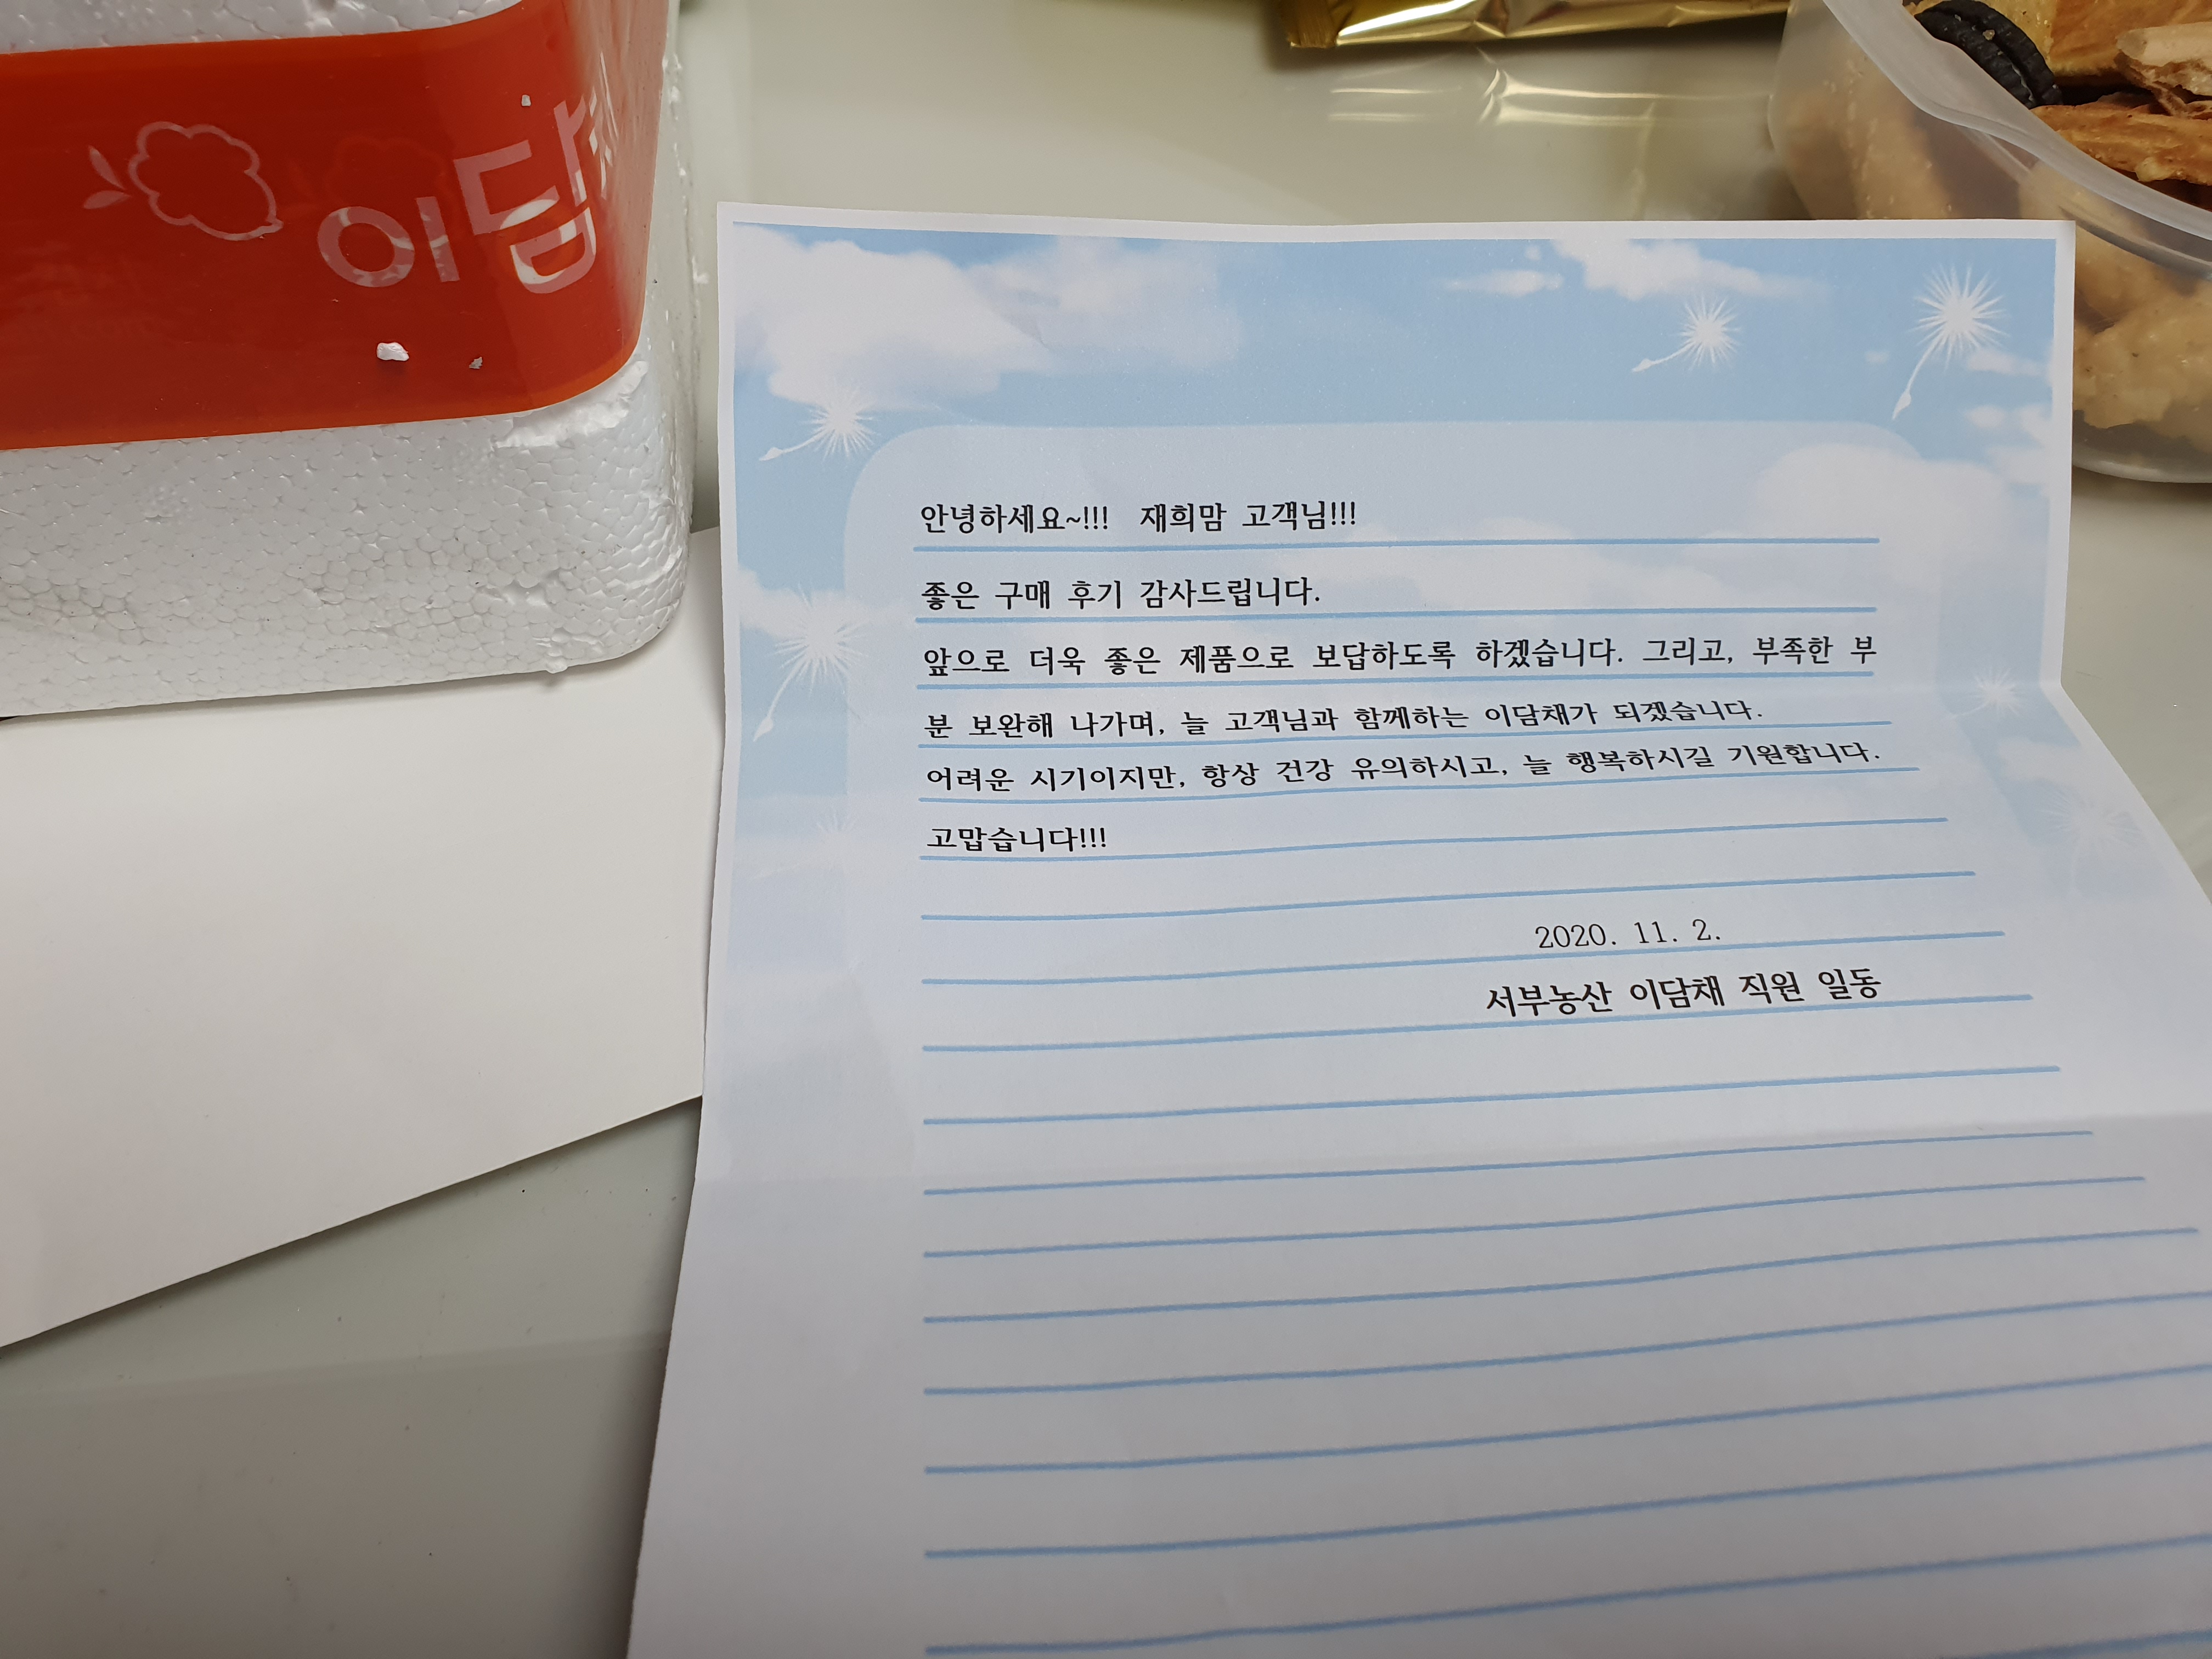 이담
안녕하세요~!!! 재희맘 고객님!!!
좋은 구매 후기 감사드립니다.
앞으로 더욱 좋은 제품으로 보답하도록 하겠습니다. 그리고, 부족한 부
분 보완해 나가며, 늘 고객님과 함께하는 이담채가 되겠습니다.
어려운 시기이지만, 항상 건강 유의하시고, 늘 행복하시길 기원합니다.
고맙습니다!!!
2020. 11. 2.
서부농산 이담채 직원 일동